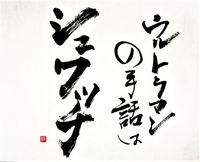 ウルトラマン
の手話は
シュワッチ